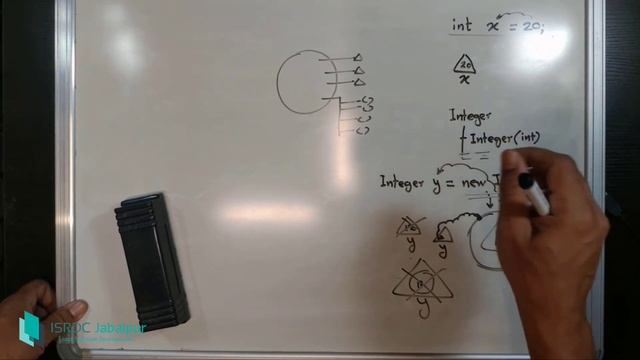 int x = 20;
20
x
Integer
Integer(int)
Integer y = new
y
y
y
ISRDC Jabalpur